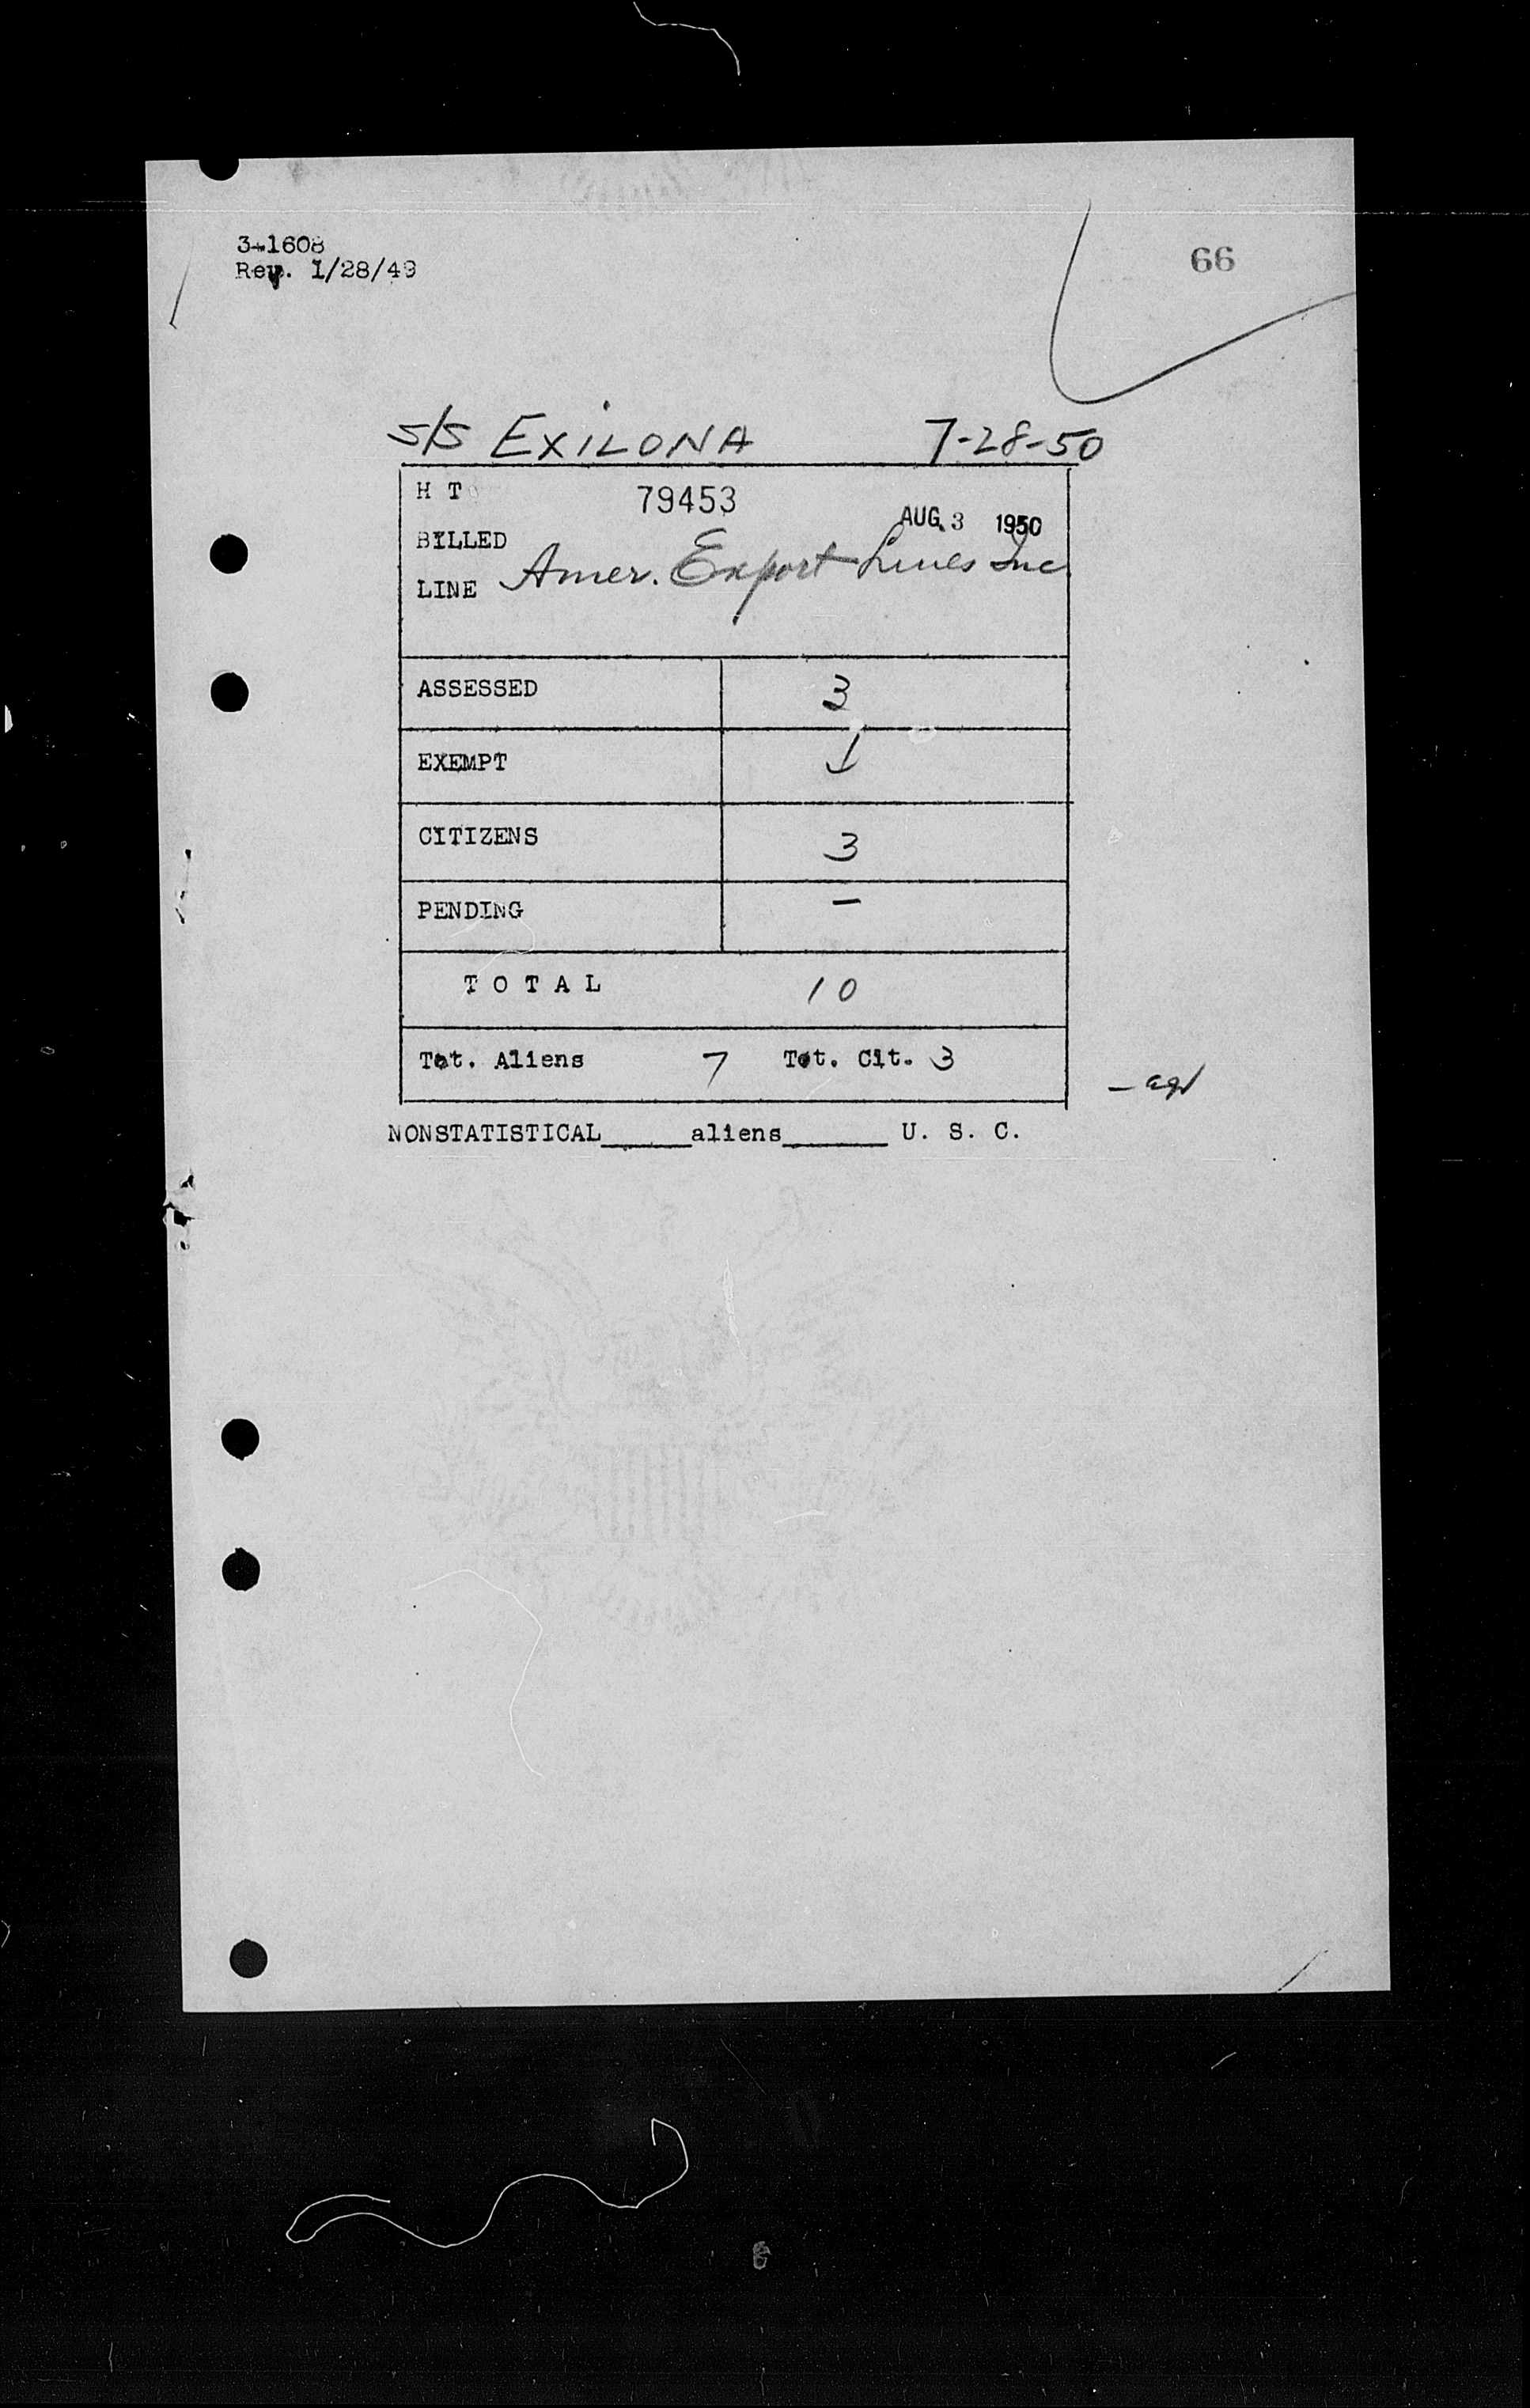 3-1608
Rev. 1/28/49
66
S/S EXILONA 7-28-50
H T 79453
AUG 3 1950
BILLED
LINE Amer. Export Lines Inc
ASSESSED 3
EXEMPT
CITIZENS 3
PENDING –
T O T A L 10
Tot. Aliens 7 Tot. Cit. 3
NONSTATISTICAL______aliens_______ U. S. C.